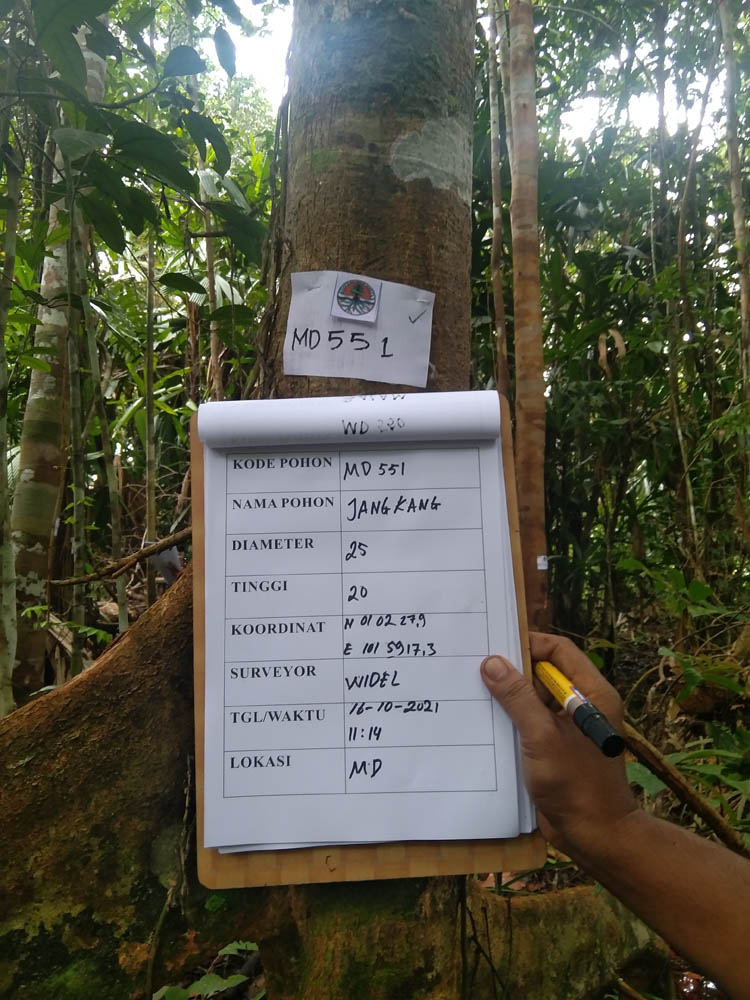 MD 551
WD 220
KODE POHON MD 551
NAMA POHON JANGKANG
DIAMETER 25
TINGGI 20
KOORDINAT N 01 02 27,9
E 101 59 17,3
SURVEYOR WIDEL
TGL/WAKTU 16-10-2021
11:14
LOKASI MD